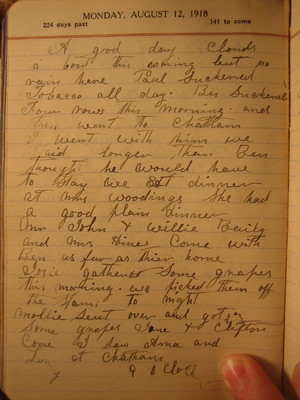 MONDAY, AUGUST 12, 1918
224 days past 141 to come
A good day Clouds
a bout this evning but no
rain here Paul Suckened
Tobacco all day. Ben Suckened
Four rows this morning. and
then went to Chatham
I went with him we
Staid longer than Ben
thought he would have
to Stay we Et dinner
at Mrs Woodings She had
a good plain dinner
Mr John & Willie
and Mrs Hines Come with
Ben as far as thier home
Josie gathered Some grapes
this morning. we picked them off
the Stems to night
Mollie Sent over and got
Some grapes Jane & Clifton
Cope I Saw Anna and
at Chatham
9 O Clock